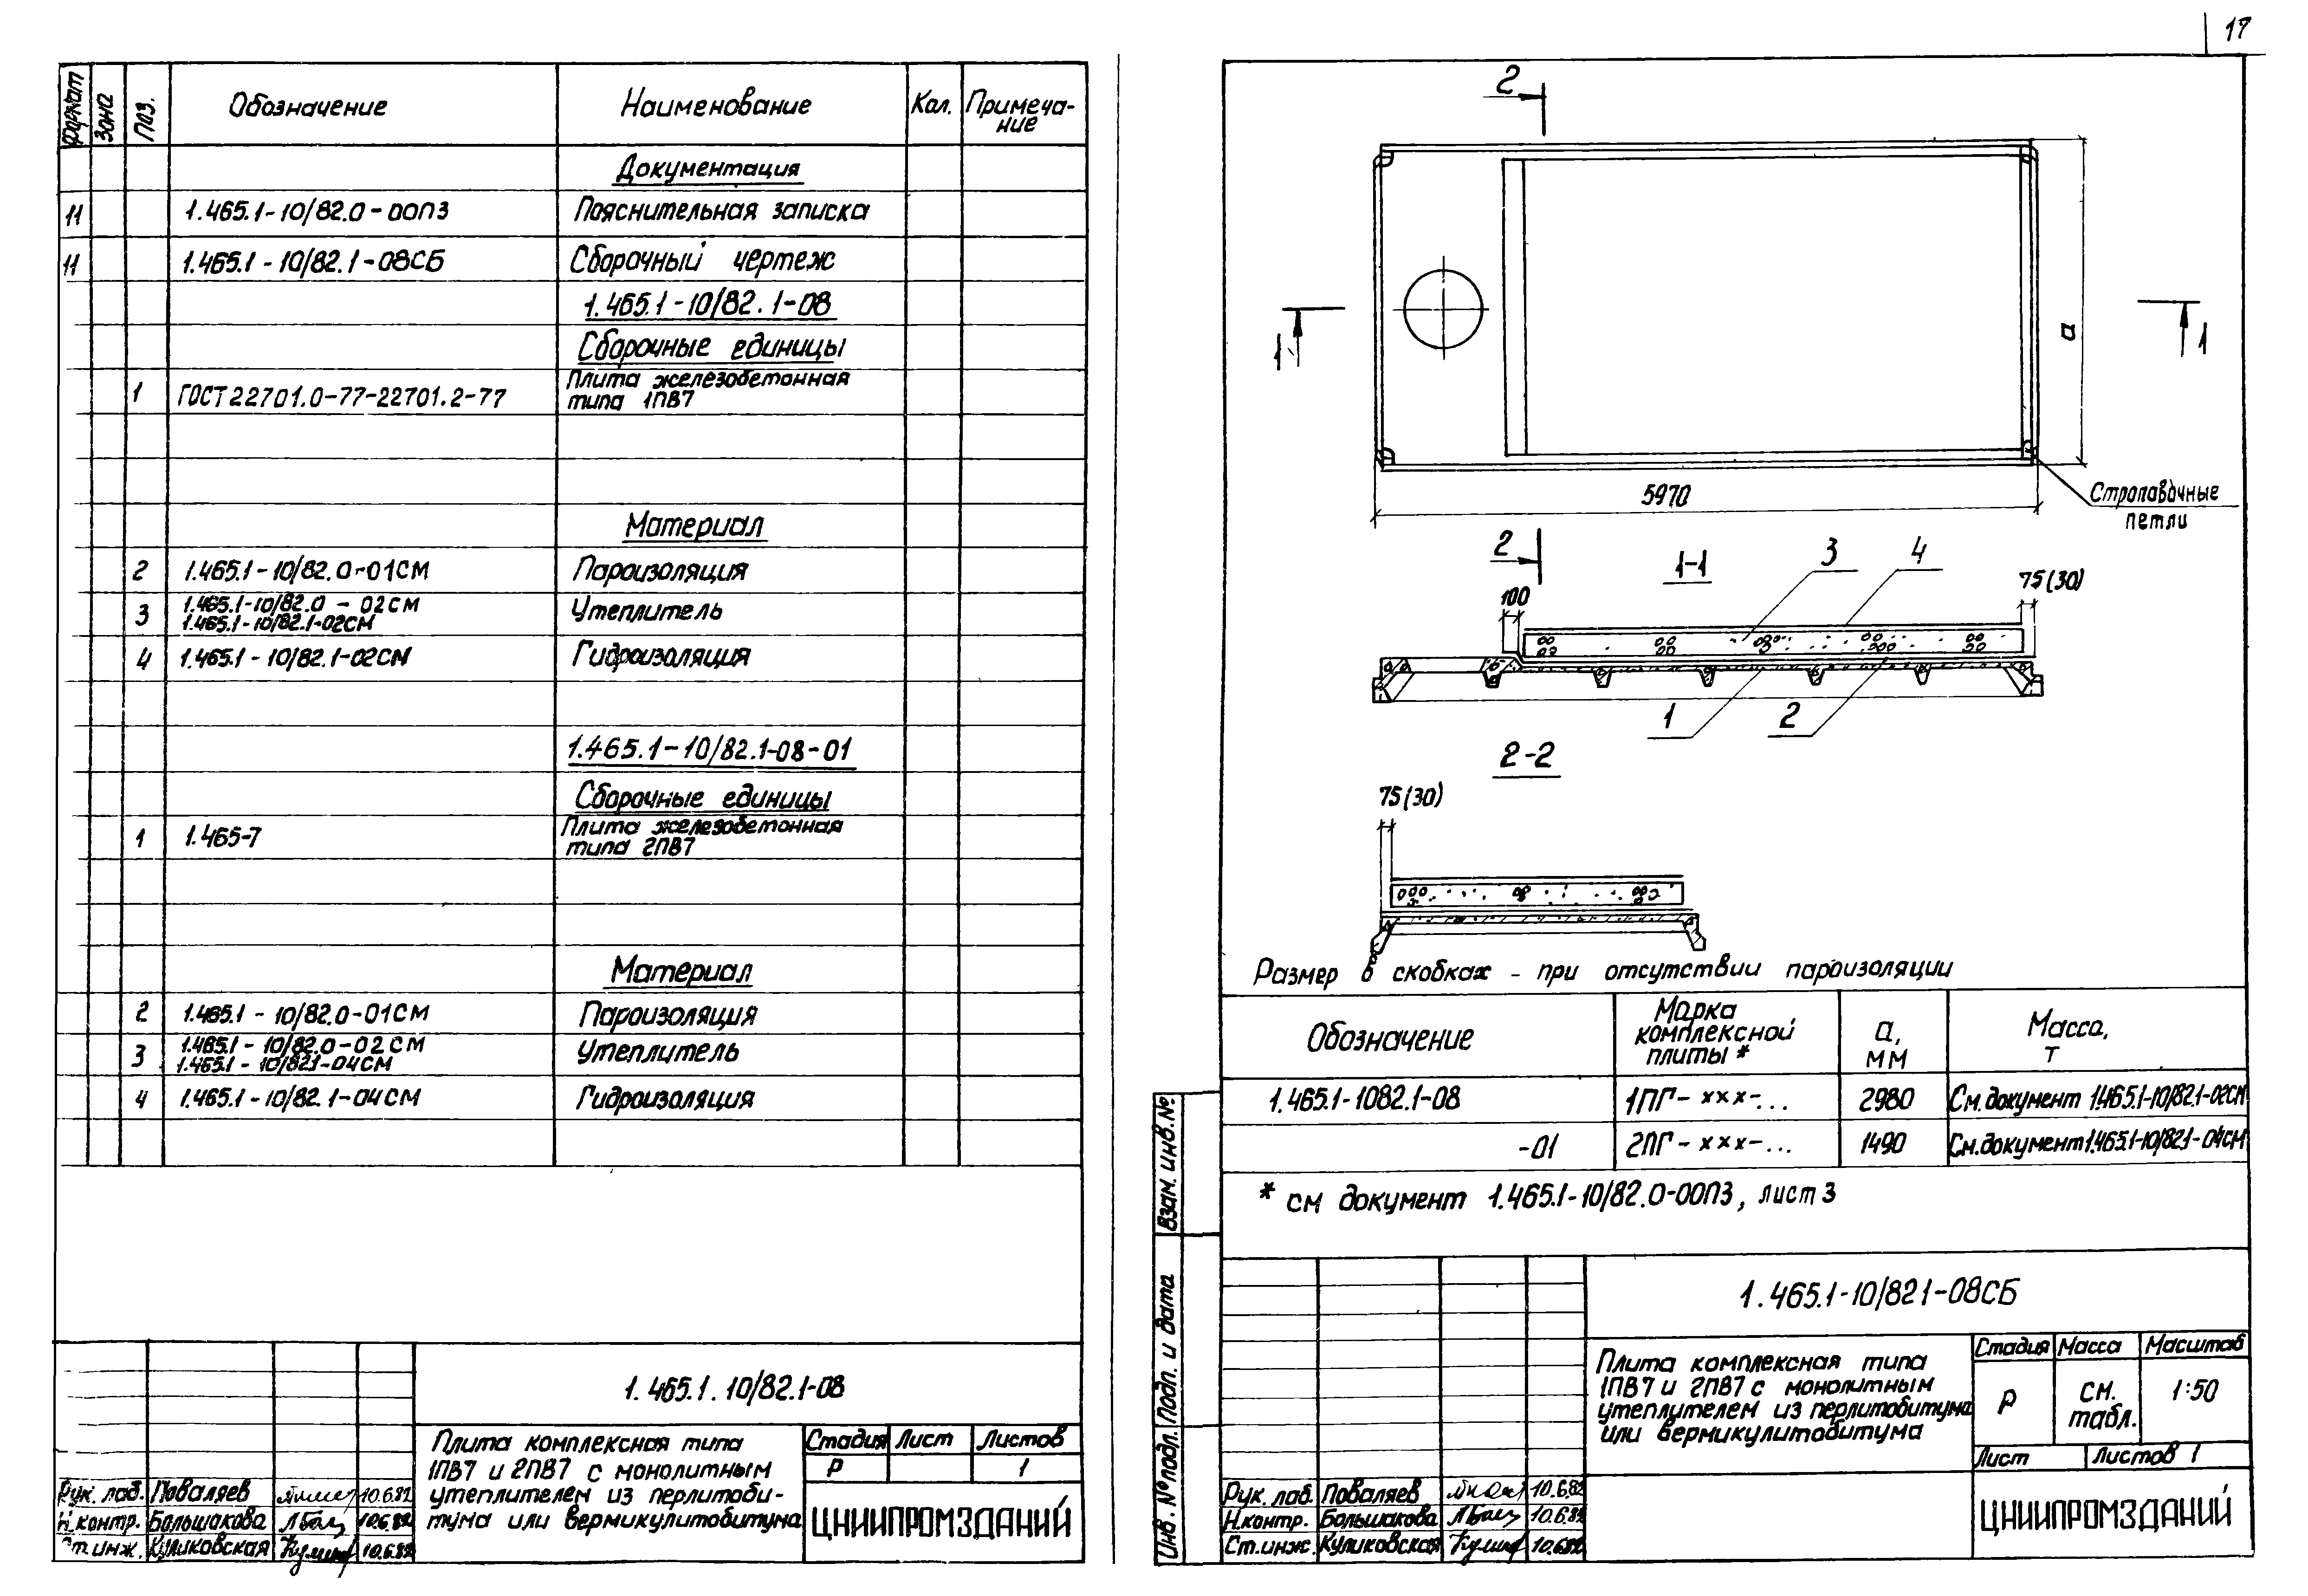 17
формат
Зона
Поз.
Обозначение
Наименование
Кол.
Примеча-
ние
Документация
11 1.465.1-10/82.0-00ПЗ Пояснительная записка
11 1.465.1-10/82.1-08СБ Сборочный чертеж
1.465.1-10/82.1-08
Сборочные единицы
1 ГОСТ 22701.0-77-22701.2-77 Плита железобетонная
типа 1ПВ7
Материал
2 1.465.1-10/82.0-01СМ Пароизоляция
3 1.465.1-10/82.0-02СМ Утеплитель
1.465.1-10/82.1-02СМ
4 1.465.1-10/82.1-02СМ Гидроизоляция
1.465.1-10/82.1-08-01
Сборочные единицы
1 1.465-7 Плита железобетонная
типа 2ПВ7
Материал
2 1.465.1-10/82.0-01СМ Пароизоляция
3 1.465.1-10/82.0-02СМ Утеплитель
1.465.1-10/821-04СМ
4 1.465.1-10/82.1-04СМ Гидроизоляция
1.465.1.10/82.1-08
Плита комплексная типа
1ПВ7 и 2ПВ7 с монолитным
утеплителем из перлитоби-
тума или вермикулитобитума
Стадия Лист Листов
Р 1
ЦНИИПРОМЗДАНИЙ
Рук. лаб. Поваляев 10.6.82
Н.контр. Большакова 10.6.82
Ст.инж. Куликовская 10.6.82
2
1
1
а
5970
Строповочные
петли
2
1-1
3
4
75(30)
100
1
2
2-2
75(30)
Размер в скобках - при отсутствии пароизоляции
Обозначение
Марка
комплексной
плиты *
а,
мм
Масса,
т
1.465.1-1082.1-08 1ПГ-×××-... 2980 См.документ 1.465.1-10/82.1-02СМ
-01 2ПГ-×××-... 1490 См.документ 1.465.1-10/82.1-04СМ
* см документ 1.465.1-10/82.0-00ПЗ, лист 3
Взам. инв.№
Подп. и дата
Инв. № подл.
1.465.1-10/821-08СБ
Плита комплексная типа
1ПВ7 и 2ПВ7 с монолитным
утеплителем из перлитобитума
или вермикулитобитума
Стадия Масса Масштаб
Р см.
табл. 1:50
Лист Листов 1
ЦНИИПРОМЗДАНИЙ
Рук. лаб. Поваляев 10.6.82
Н.контр. Большакова 10.6.82
Ст.инж. Куликовская 10.6.82